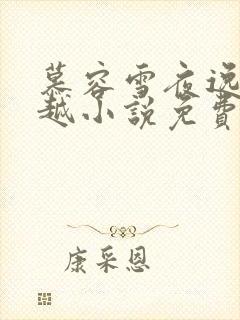 慕容雪夜逸
越小説免費
康采恩